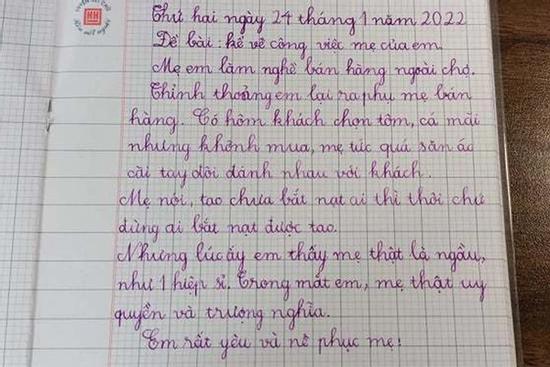 Thứ hai ngày 24 tháng 1 năm 2022
Đề bài: kể về công việc mẹ của em.
Mẹ em làm nghề bán hàng ngoài chợ.
Thỉnh thoảng em lại ra phụ mẹ bán
hàng. Có hôm khách chọn tôm, cá mãi
nhưng khônh mua, mẹ tức quá săn áo
cài tay dôi đánh nhau với khách.
Mẹ nói, tao chưa bắt nạt ai thì thôi chứ
đừng ai bắt nạt được tao.
Nhưng lúc ấy em thấy mẹ thật là ngầu,
như 1 hiệp sĩ. Trong mắt em, mẹ thật uy
quyền và trượng nghĩa.
Em rất yêu và nể phục mẹ!